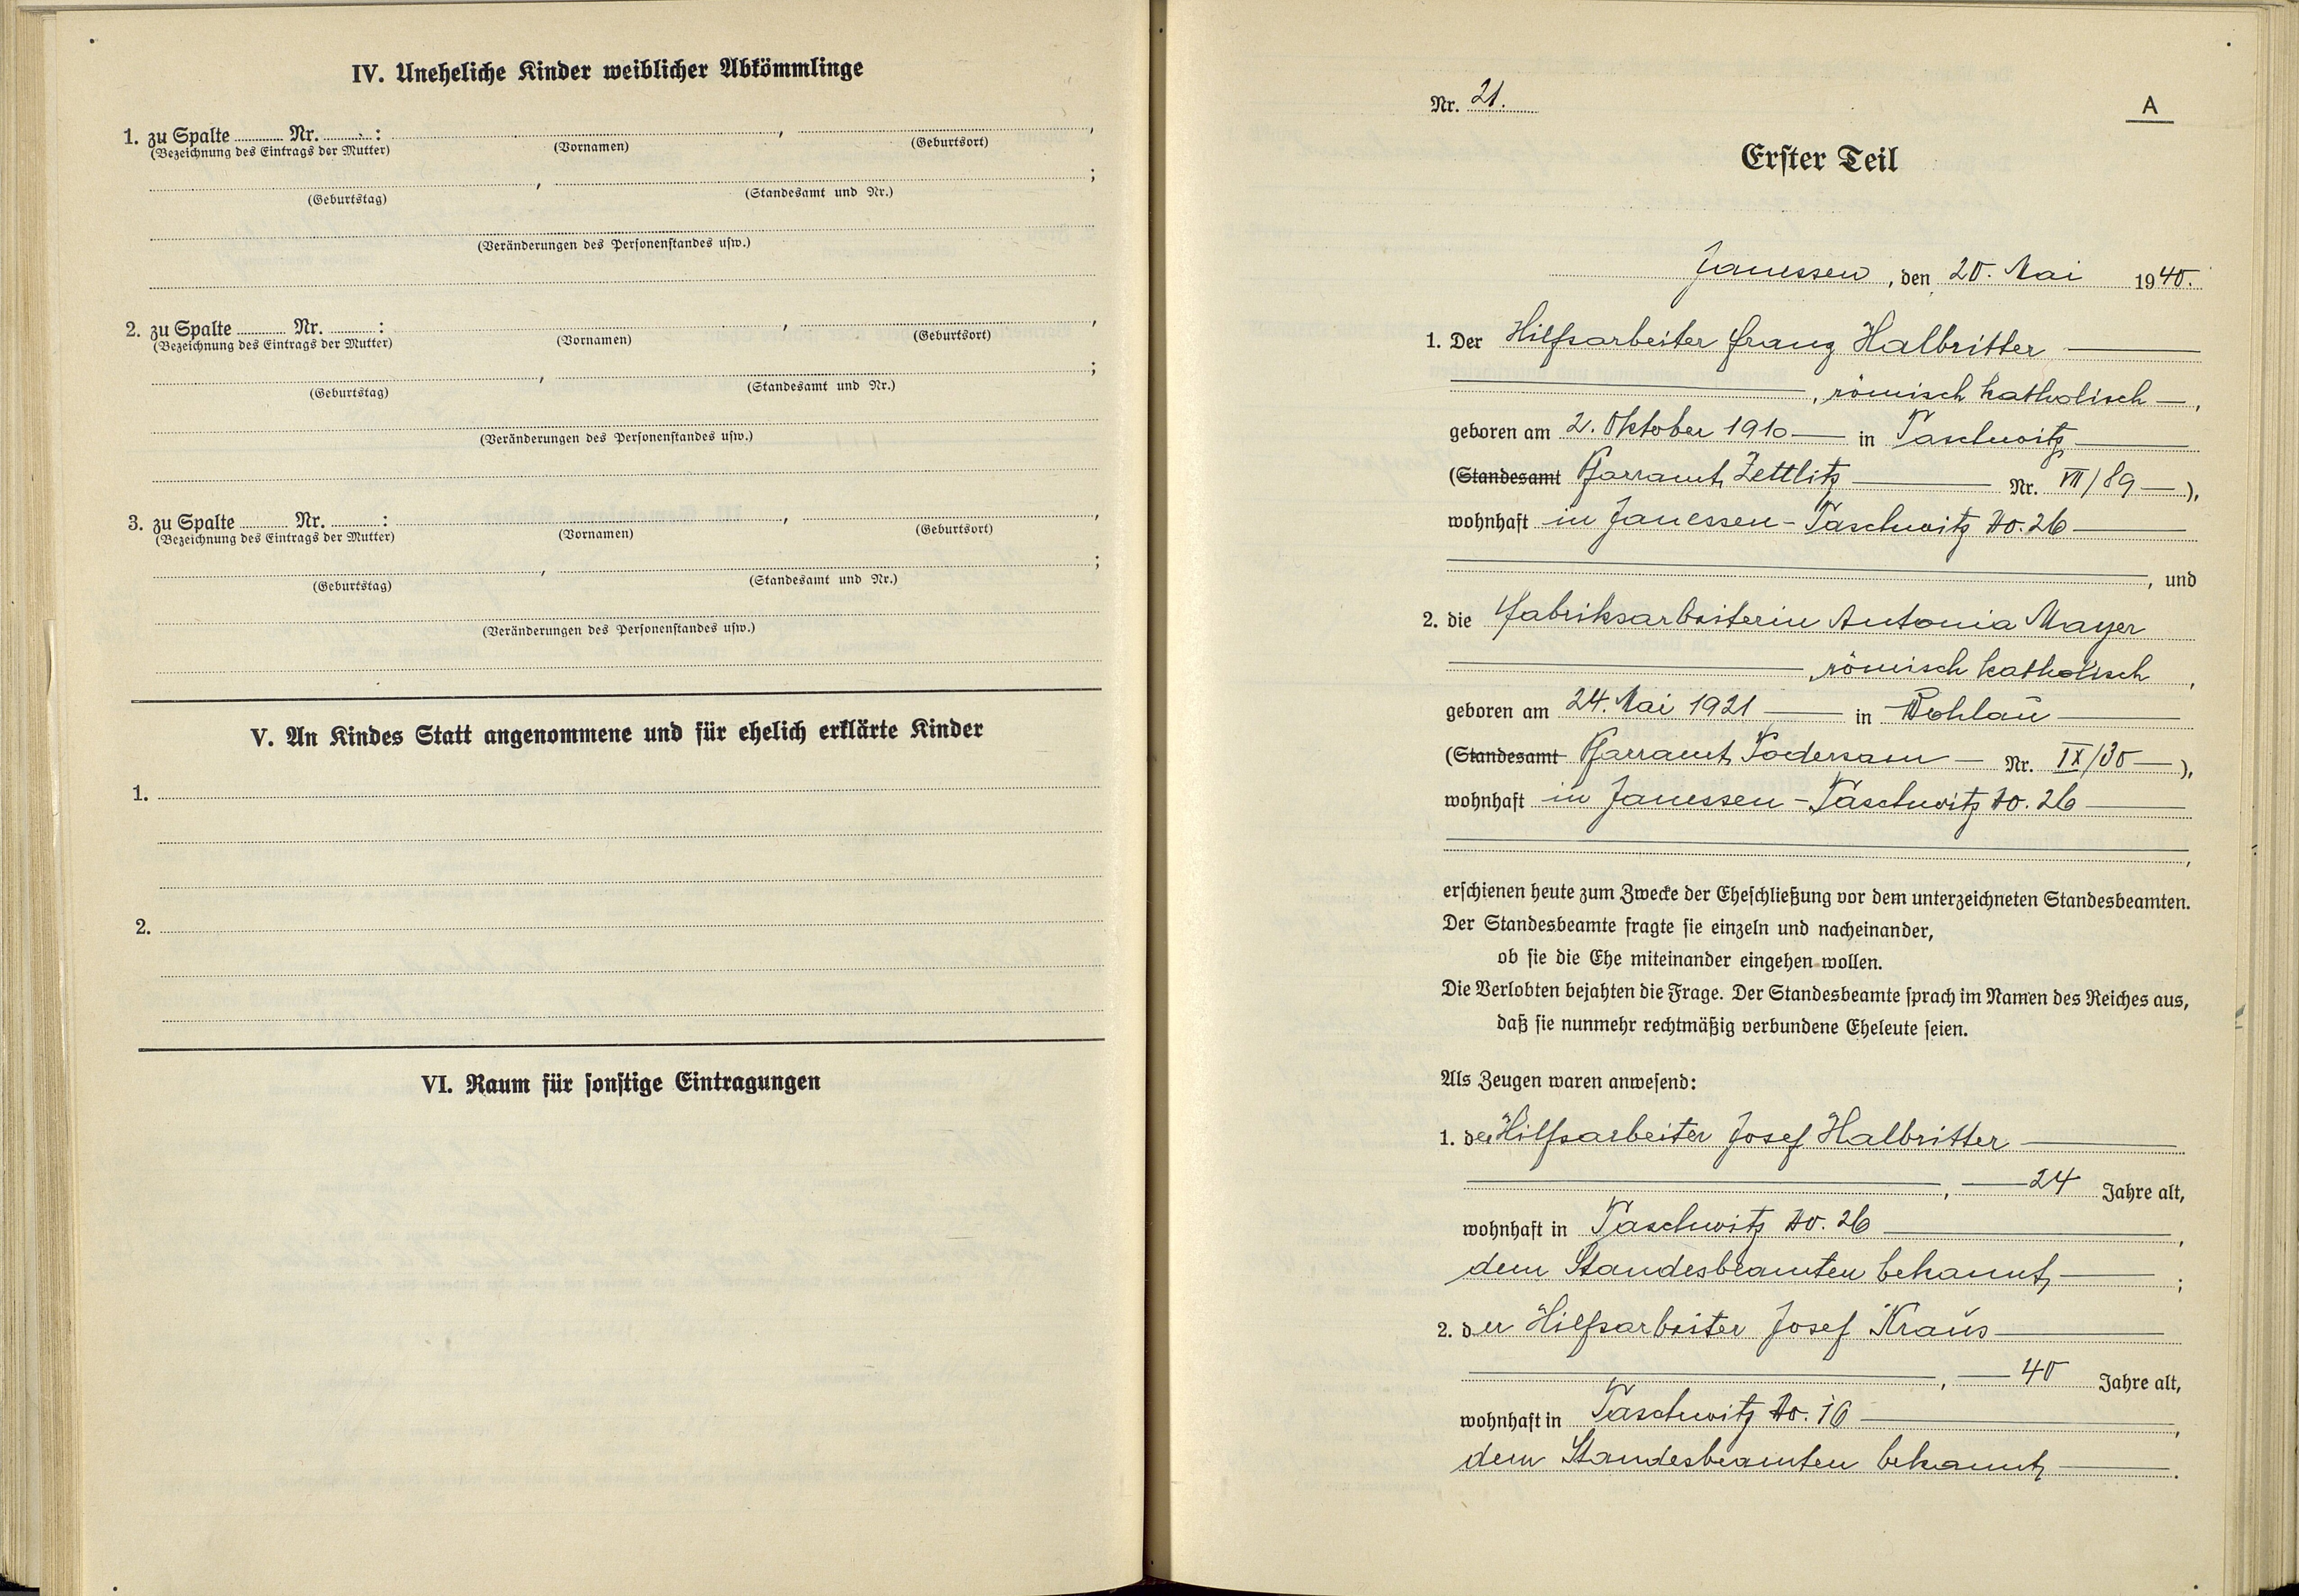 IV. Uneheliche Kinder weiblicher Abkömmlinge
1. zu Spalte ........ Nr. ........ :
(Bezeichnung des Eintrags der Mutter)
(Vornamen)
(Geburtsort)
(Geburtstag)
(Standesamt und Nr.)
(Veränderungen des Personenstandes usw.)
2. zu Spalte ........ Nr. ........ :
(Bezeichnung des Eintrags der Mutter)
(Vornamen)
(Geburtsort)
(Geburtstag)
(Standesamt und Nr.)
(Veränderungen des Personenstandes usw.)
3. zu Spalte ........ Nr. ........ :
(Bezeichnung des Eintrags der Mutter)
(Vornamen)
(Geburtsort)
(Geburtstag)
(Standesamt und Nr.)
(Veränderungen des Personenstandes usw.)
V. An Kindes Statt angenommene und für ehelich erklärte Kinder
1.
2.
VI. Raum für sonstige Eintragungen
Nr. 21.
A
Erster Teil
Janessen, den 20. Mai 1940.
1. Der Hilfsarbeiter Franz Halbritter
, römisch katholisch —,
geboren am 2. Oktober 1910 — in Taschwitz
(Standesamt Pfarramt Zettlitz — Nr. VII/89 —),
wohnhaft in Janessen-Taschwitz No. 26
, und
2. die Fabriksarbeiterin Antonia Mayer
, römisch katholisch ,
geboren am 24. Mai 1921 — in Wohlau
(Standesamt Pfarramt Podersam — Nr. IX/30 —),
wohnhaft in Janessen-Taschwitz No. 26
,
erschienen heute zum Zwecke der Eheschließung vor dem unterzeichneten Standesbeamten.
Der Standesbeamte fragte sie einzeln und nacheinander,
ob sie die Ehe miteinander eingehen wollen.
Die Verlobten bejahten die Frage. Der Standesbeamte sprach im Namen des Reiches aus,
daß sie nunmehr rechtmäßig verbundene Eheleute seien.
Als Zeugen waren anwesend:
1. der Hilfsarbeiter Josef Halbritter
, — 24 Jahre alt,
wohnhaft in Taschwitz No. 26 ,
dem Standesbeamten bekannt — ;
2. der Hilfsarbeiter Josef Kraus
, — 40 Jahre alt,
wohnhaft in Taschwitz No. 16 ,
dem Standesbeamten bekannt — .